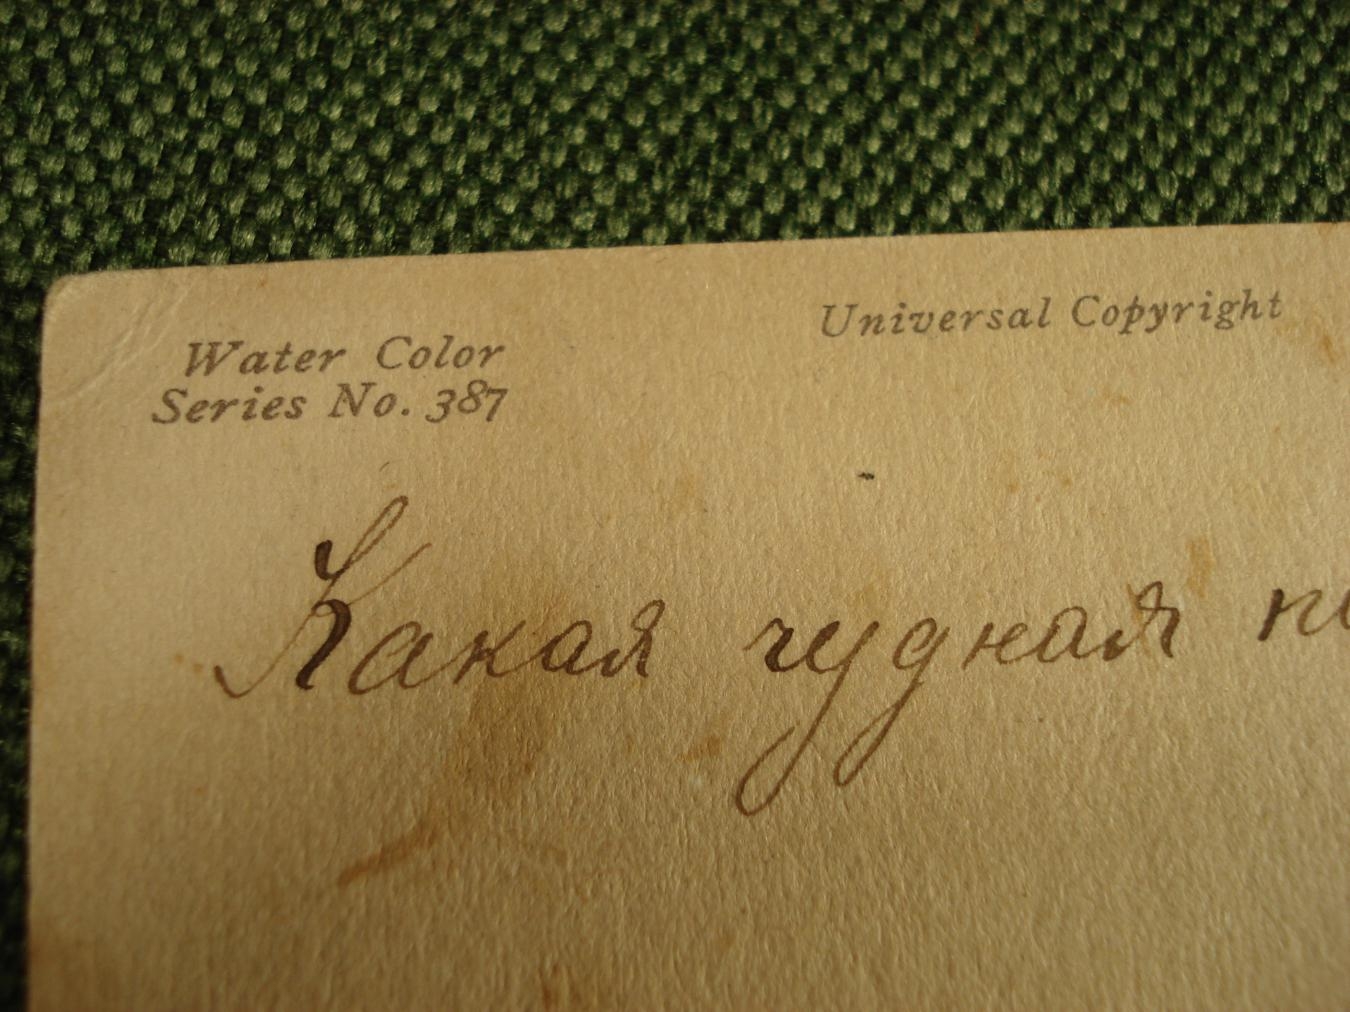 Universal Copyright
Water Color
Series No. 387
Какая чудная